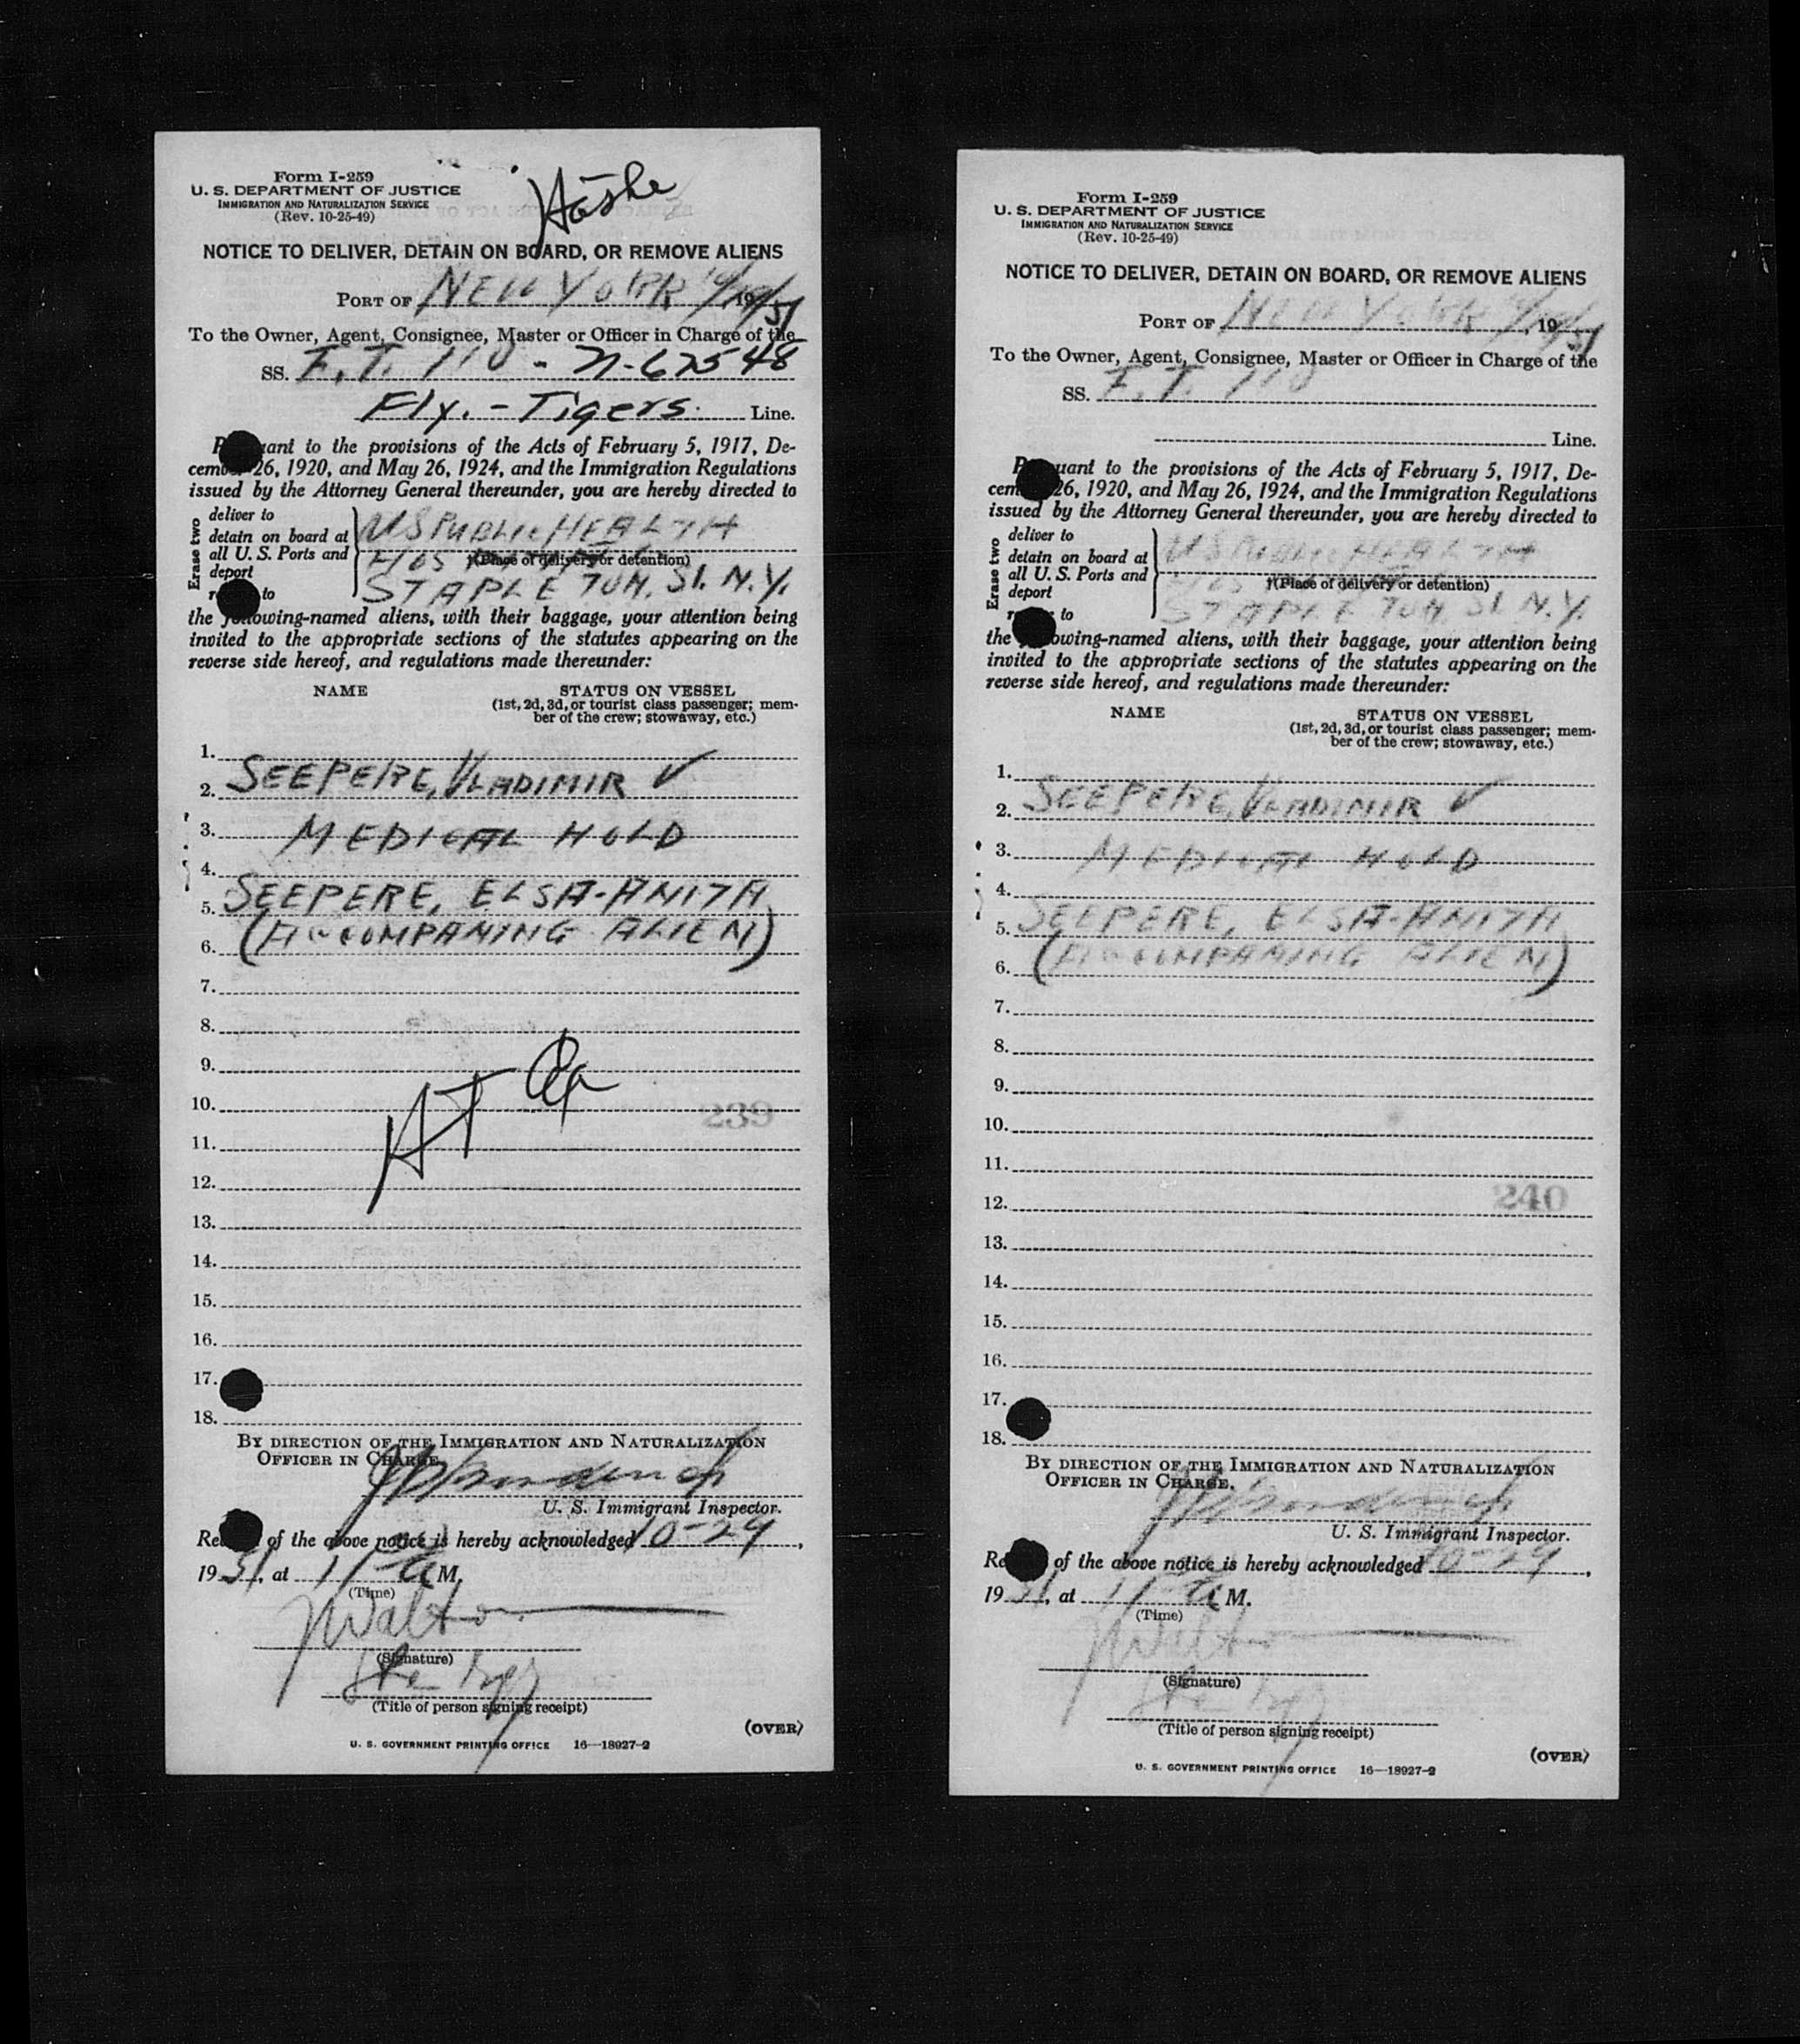 Form I-259
U. S. DEPARTMENT OF JUSTICE
IMMIGRATION AND NATURALIZATION SERVICE
(Rev. 10-25-49)
NOTICE TO DELIVER, DETAIN ON BOARD, OR REMOVE ALIENS
PORT OF NEW YORK 19 51
To the Owner, Agent, Consignee, Master or Officer in Charge of the
SS. F.T. 110 - N-62548
Fly. - Tigers. Line.
to the provisions of the Acts of February 5, 1917, De-
26, 1920, and May 26, 1924, and the Immigration Regulations
issued by the Attorney General thereunder, you are hereby directed to
Erase two
deliver to
detain on board at
all U. S. Ports and
deport
to
US PUBLIC HEALTH
HOS
†(Place of delivery or detention)
STAPLETON, S.I. N.Y.
the following-named aliens, with their baggage, your attention being
invited to the appropriate sections of the statutes appearing on the
reverse side hereof, and regulations made thereunder:
NAME STATUS ON VESSEL
(1st, 2d, 3d, or tourist class passenger; mem-
ber of the crew; stowaway, etc.)
1.
2. SEEPERE, VLADIMIR ✓
3. MEDICAL HOLD
4.
5. SEEPERE, ELSA-ANITA
6. (ACCOMPANING ALIEN)
7.
8.
9.
10.
239
11.
12.
13.
14.
15.
16.
17.
18.
BY DIRECTION OF THE IMMIGRATION AND NATURALIZATION
OFFICER IN CHARGE.
U. S. Immigrant Inspector.
of the above notice is hereby acknowledged 10-29,
19 51, at 11 - A M.
(Time)
JWalton
(Signature)
(Title of person signing receipt)
(OVER)
U. S. GOVERNMENT PRINTING OFFICE 16—18927-2
Form I-259
U. S. DEPARTMENT OF JUSTICE
IMMIGRATION AND NATURALIZATION SERVICE
(Rev. 10-25-49)
NOTICE TO DELIVER, DETAIN ON BOARD, OR REMOVE ALIENS
PORT OF NEW YORK , 19 51
To the Owner, Agent, Consignee, Master or Officer in Charge of the
SS. F.T. 110
Line.
to the provisions of the Acts of February 5, 1917, De-
26, 1920, and May 26, 1924, and the Immigration Regulations
issued by the Attorney General thereunder, you are hereby directed to
Erase two
deliver to
detain on board at
all U. S. Ports and
deport
to
US PUBLIC HEALTH
HOS
†(Place of delivery or detention)
STAPLETON, S.I. N.Y.
the following-named aliens, with their baggage, your attention being
invited to the appropriate sections of the statutes appearing on the
reverse side hereof, and regulations made thereunder:
NAME STATUS ON VESSEL
(1st, 2d, 3d, or tourist class passenger; mem-
ber of the crew; stowaway, etc.)
1.
2. SEEPERE, VLADIMIR ✓
3. MEDICAL HOLD
4.
5. SEEPERE, ELSA-ANITA
6. (ACCOMPANING ALIEN)
7.
8.
9.
10.
11.
12.
240
13.
14.
15.
16.
17.
18.
BY DIRECTION OF THE IMMIGRATION AND NATURALIZATION
OFFICER IN CHARGE.
U. S. Immigrant Inspector.
of the above notice is hereby acknowledged 10-29,
19 51, at 11 - A M.
(Time)
JWalton
(Signature)
(Title of person signing receipt)
(OVER)
U. S. GOVERNMENT PRINTING OFFICE 16—18927-2